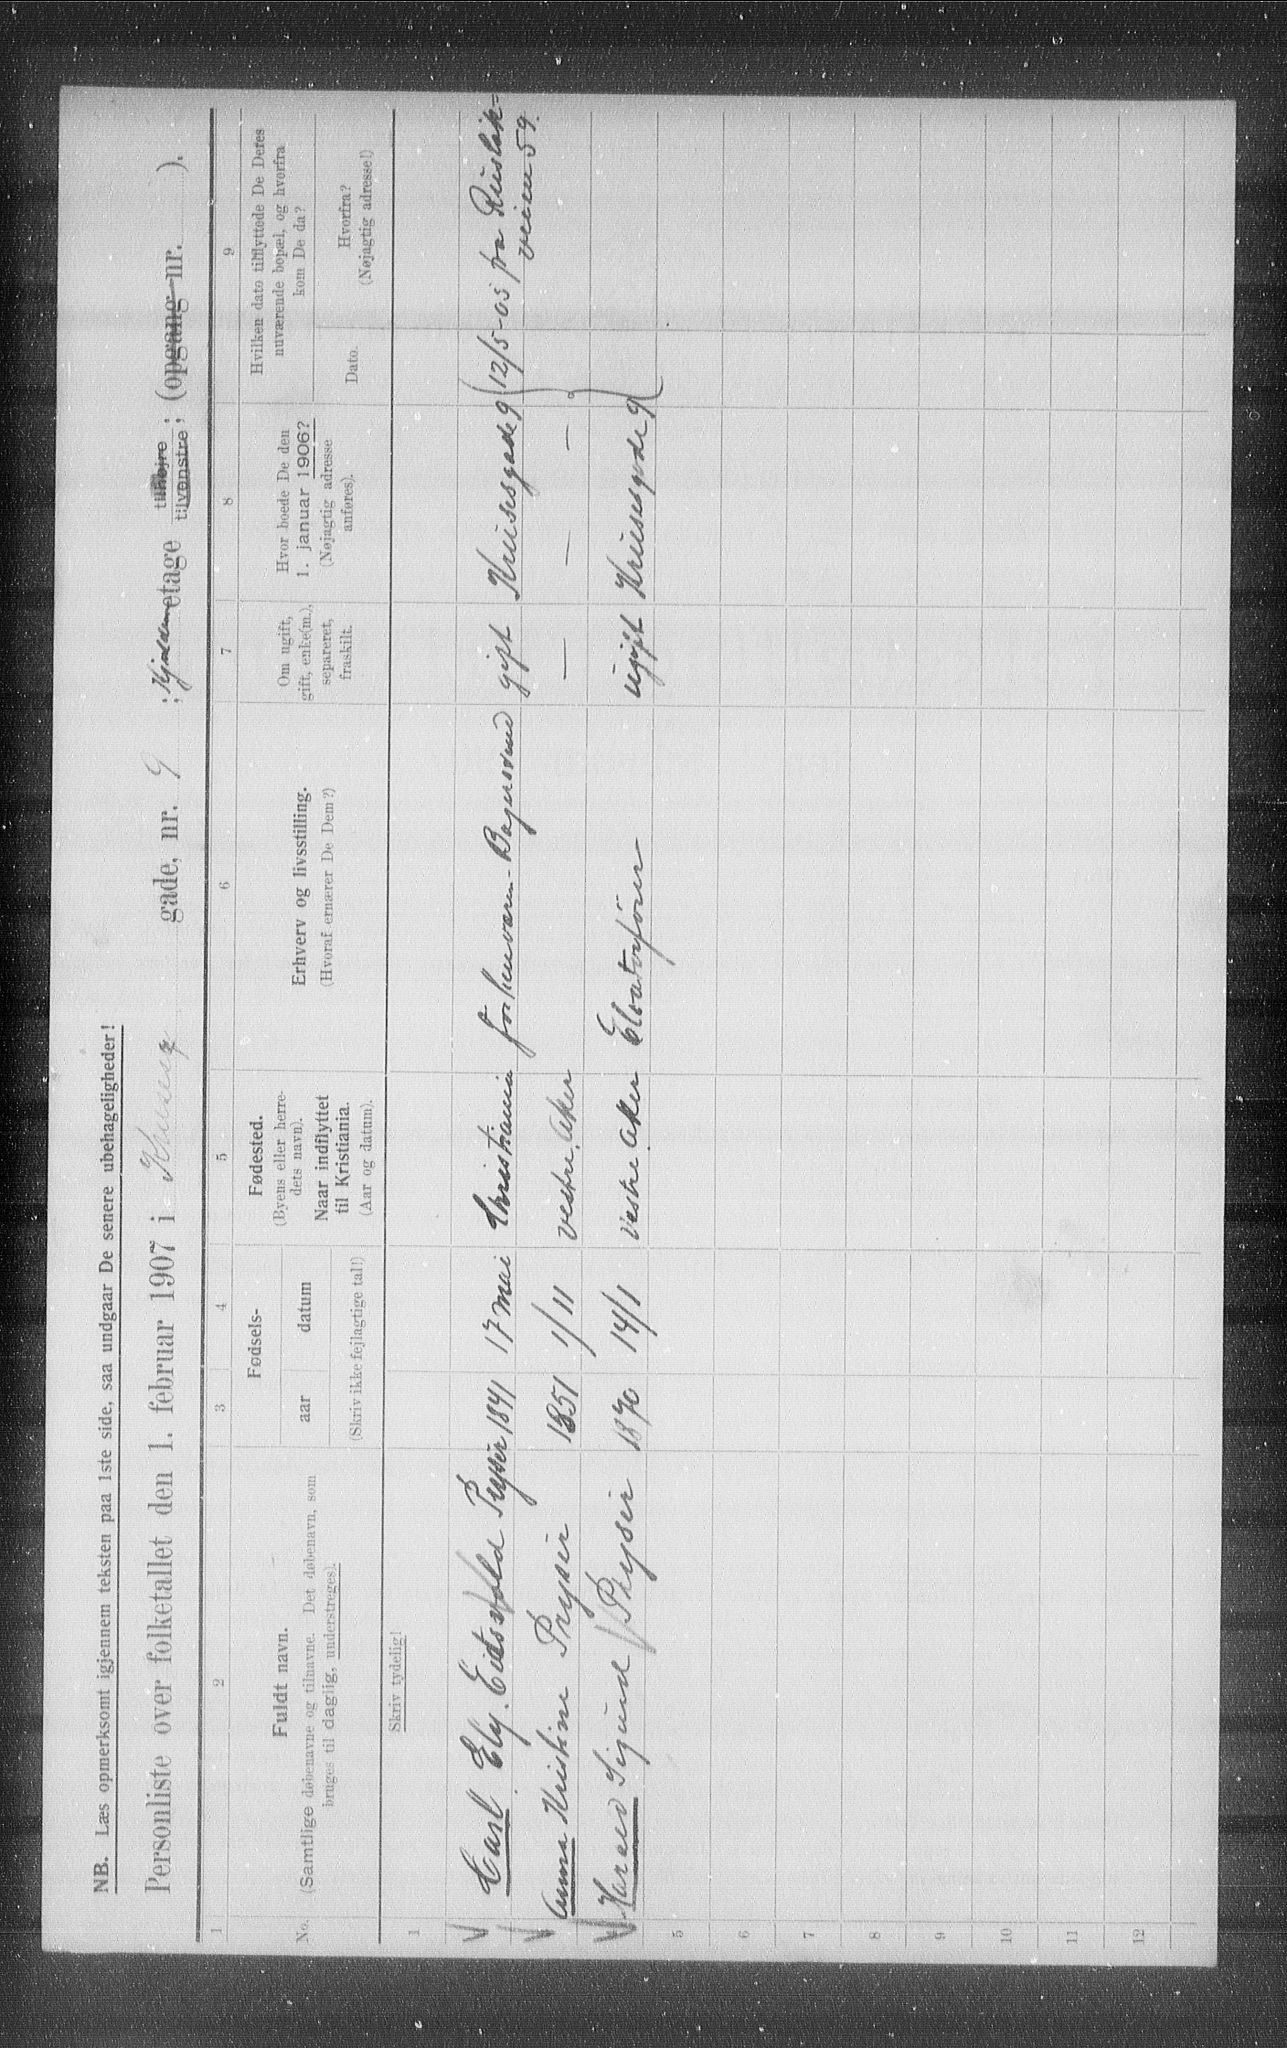 NB. Læs opmerksomt igjennem teksten paa 1ste side, saa undgaar De senere ubehageligheder!
Personliste over folketallet den 1. februar 1907 i Kruses gade, nr. 9 ; Kjelder etage tilhøjre ; tilvenstre ; (opgang nr. ).
1 2 3 4 5 6 7 8 9
No.
Fuldt navn.
(Samtlige døbenavne og tilnavne. Det døbenavn, som
bruges til daglig, understreges).
Fødsels-
aar datum
(Skriv ikke fejlagtige tal!)
Fødested.
(Byens eller herre-
dets navn).
Naar indflyttet
til Kristiania.
(Aar og datum).
Erhverv og livsstilling.
(Hvoraf ernærer De Dem?)
Om ugift,
gift, enke(m.),
separeret,
fraskilt.
Hvor boede De den
1. januar 1906?
(Nøjagtig adresse
anføres).
Hvilken dato tilflyttede De Deres
nuværende bopæl, og hvorfra
kom De da?
Dato.
Hvorfra?
(Nøjagtig adresse!)
Skriv tydelig!
1
Carl Elf. Eidsvold Pryser 1841 17 mai Christiania forhenværen. Bagersvend gift Krusesgade 9 12/5-05 fra Rusløk-
veien 59.
Anna Kristine Pryser 1851 1/11 vestre Aker — — —
Harald Sigurd Pryser 1870 14/1 Vestre Aker Elvatorfører ugift Krusesgade 9
5
6
7
8
9
10
11
12